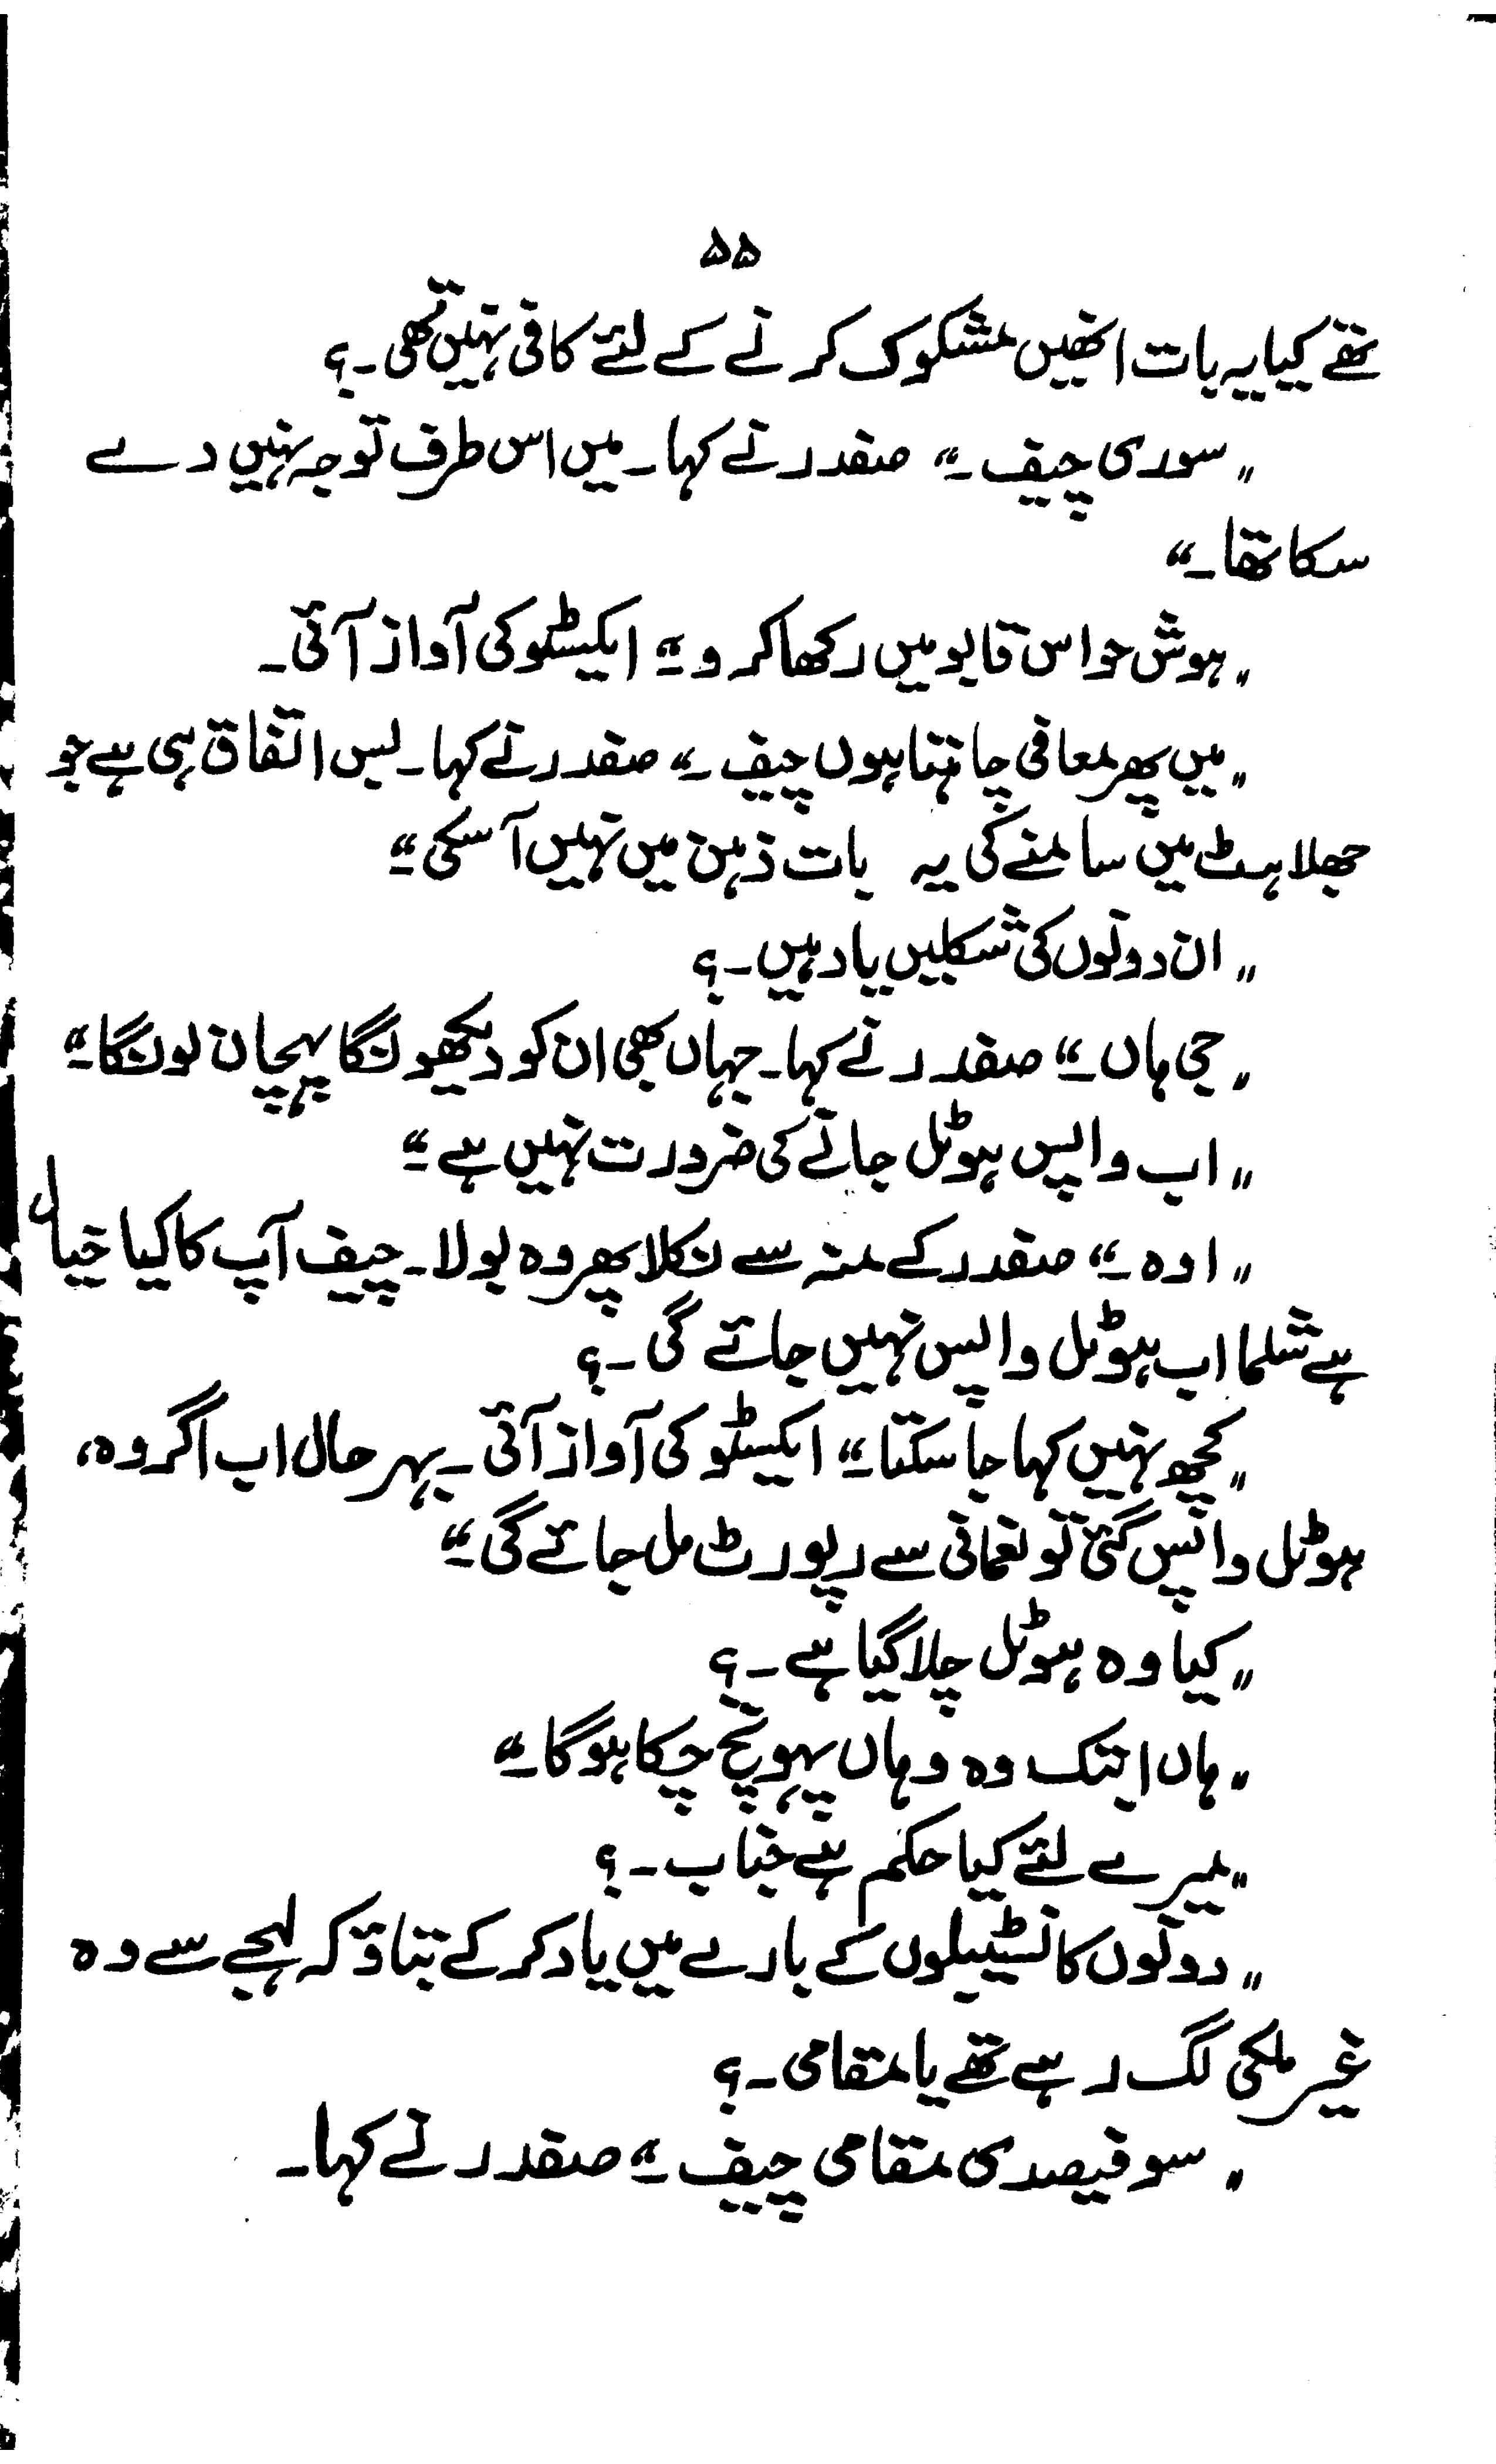 ۵۵
تھے کیا یہ بات انھیں مشکوک کرنے کے لئے کافی نہیں تھی۔؟
"سوری چیف۔" صفدر نے کہا۔ میں اس طرف توجہ نہیں دے
سکا تھا۔"
"ہوش حواس قابو میں رکھا کرو۔" ایکسٹو کی آواز آئی۔
"میں پھر معافی چاہتا ہوں چیف۔" صفدر نے کہا۔ بس اتفاق ہی ہے جو
جھلاہٹ میں سامنے کی یہ بات ذہن میں نہیں آسکی۔"
"ان دونوں کی شکلیں یاد ہیں۔؟
"جی ہاں۔" صفدر نے کہا۔ جہاں بھی ان کو دیکھونگا پہچان لونگا۔"
"اب واپس ہوٹل جانے کی ضرورت نہیں ہے۔"
"اوہ۔" صفدر کے منہ سے نکلا پھر وہ بولا۔ چیف آپ کا کیا خیال
ہے شلما اب ہوٹل واپس نہیں جائے گی۔؟
"کچھ نہیں کہا جا سکتا۔" ایکسٹو کی آواز آئی۔ بہر حال اب اگر وہ،
ہوٹل واپس گئی تو نعمانی سے رپورٹ مل جائے گی۔"
"کیا وہ ہوٹل چلا گیا ہے۔؟
"ہاں ابتک وہ وہاں پہونچ چکا ہوگا۔"
"میرے لئے کیا حکم ہے جناب۔؟
"دونوں کانسٹیبلوں کے بارے میں یاد کر کے بتاؤ کہ لہجے سے وہ
غیر ملکی لگ رہے تھے یا مقامی۔؟
"سو فیصدی مقامی چیف۔" صفدر نے کہا۔